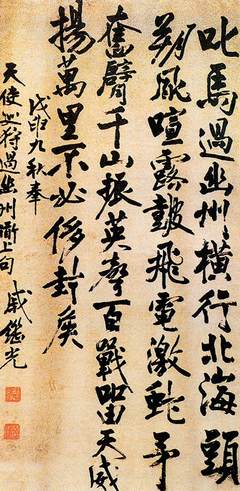 叱馬過幽州橫行北海頭
朔風喧露鼓飛電激蛇矛
奮臂千山振英聲百戰留天威
揚萬里不必侈封矦
戊申九秋奉
天使巡狩過幽州衝上句
戚繼光